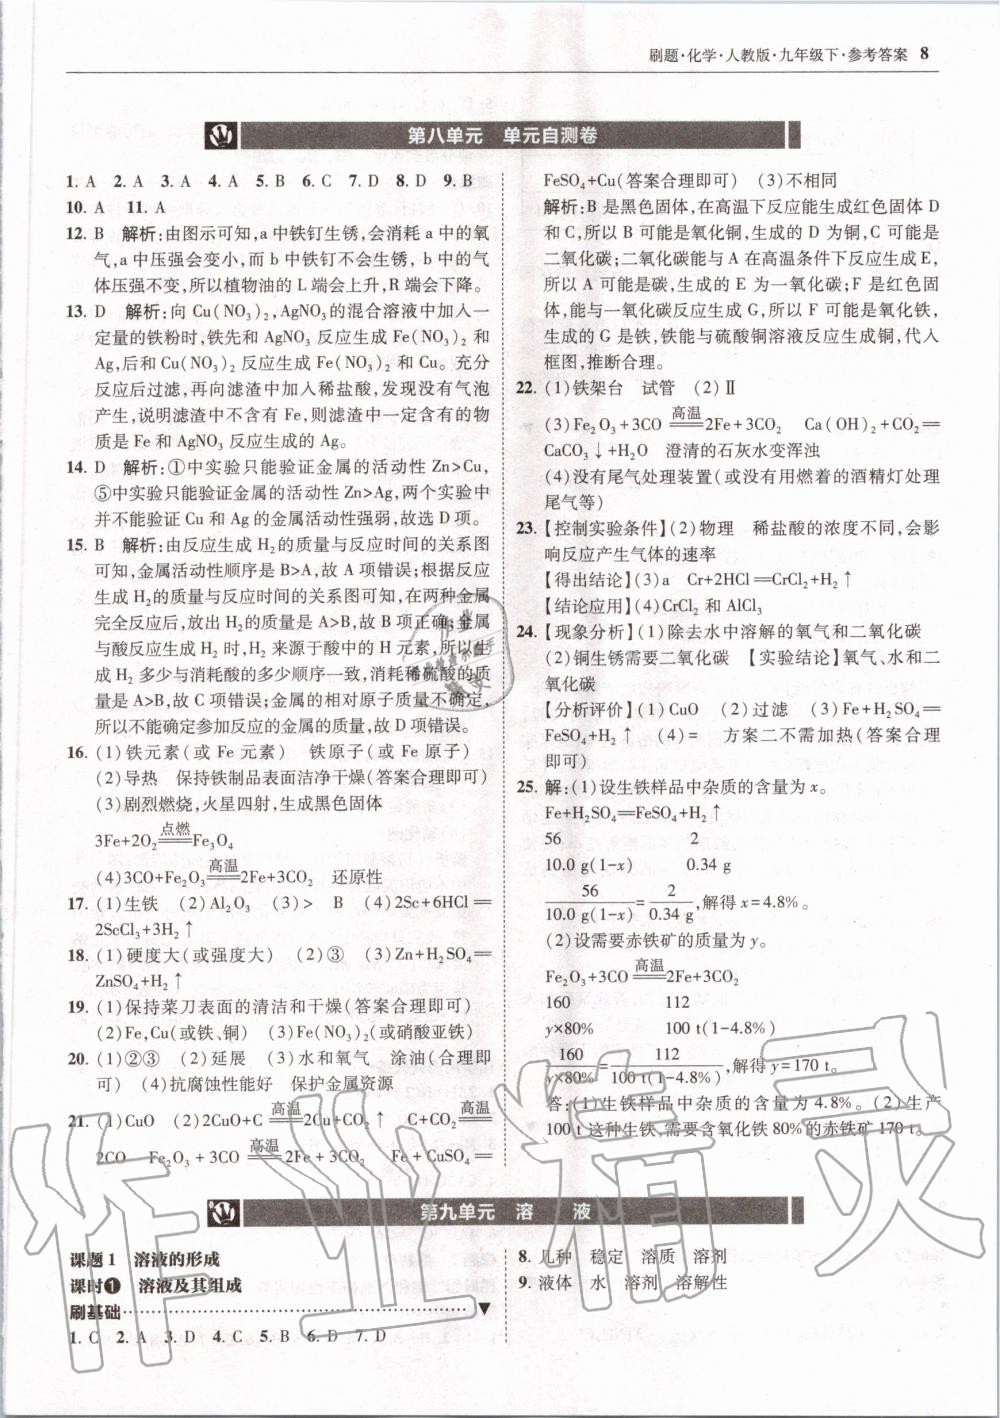 刷题·化学·人教版·九年级下·参考答案 8
第八单元 单元自测卷
1. A 2. A 3. A 4. A 5. B 6. C 7. D 8. D 9. B
10. A 11. A
12. B 解析:由图示可知,a 中铁钉生锈,会消耗 a 中的氧
气,a 中压强会变小,而 b 中铁钉不会生锈, b 中的气
体压强不变,所以植物油的 L 端会上升,R 端会下降。
13. D 解析:向 Cu(NO₃)₂,AgNO₃的混合溶液中加入一
定量的铁粉时,铁先和 AgNO₃ 反应生成 Fe(NO₃)₂ 和
Ag,后和 Cu(NO₃)₂ 反应生成 Fe(NO₃)₂ 和 Cu。充分
反应后过滤,再向滤渣中加入稀盐酸,发现没有气泡
产生,说明滤渣中不含有 Fe,则滤渣中一定含有的物
质是 Fe 和 AgNO₃ 反应生成的 Ag。
14. D 解析:①中实验只能验证金属的活动性 Zn>Cu,
⑤中实验只能验证金属的活动性 Zn>Ag,两个实验中
并不能验证 Cu 和 Ag 的金属活动性强弱,故选 D 项。
15. B 解析:由反应生成 H₂ 的质量与反应时间的关系图
可知,金属活动性顺序是 B>A,故 A 项错误;根据反应
生成 H₂的质量与反应时间的关系图可知,在两种金属
完全反应后,放出 H₂的质量是 A>B,故 B 项正确;金属
与酸反应生成 H₂ 时,H₂ 来源于酸中的 H 元素,所以生
成 H₂ 多少与消耗酸的多少顺序一致,消耗稀硫酸的质
量是 A>B,故 C 项错误;金属的相对原子质量不确定,
所以不能确定参加反应的金属的质量,故 D 项错误。
16. (1)铁元素(或 Fe 元素) 铁原子(或 Fe 原子)
(2)导热 保持铁制品表面洁净干燥(答案合理即可)
(3)剧烈燃烧,火星四射,生成黑色固体
3Fe+2O₂ 点燃══ Fe₃O₄
(4)3CO+Fe₂O₃ 高温══ 2Fe+3CO₂ 还原性
17. (1)生铁 (2)Al₂O₃ (3)> B (4)2Sc+6HCl══
2ScCl₃+3H₂↑
18. (1)硬度大(或强度大) (2)③ (3)Zn+H₂SO₄══
ZnSO₄+H₂↑
19. (1)保持菜刀表面的清洁和干燥(答案合理即可)
(2)Fe,Cu(或铁、铜) (3)Fe(NO₃)₂(或硝酸亚铁)
20. (1)②③ (2)延展 (3)水和氧气 涂油(合理即
可) (4)抗腐蚀性能好 保护金属资源
21. (1)CuO (2)2CuO+C 高温══ 2Cu+CO₂↑ C+CO₂ 高温══
2CO Fe₂O₃+3CO 高温══ 2Fe+3CO₂ Fe+CuSO₄══
FeSO₄+Cu(答案合理即可) (3)不相同
解析:B 是黑色固体,在高温下反应能生成红色固体 D
和 C,所以 B 可能是氧化铜,生成的 D 为铜,C 可能是
二氧化碳;二氧化碳能与 A 在高温条件下反应生成 E,
所以 A 可能是碳,生成的 E 为一氧化碳;F 是红色固
体,能与一氧化碳反应生成 G,所以 F 可能是氧化铁,
生成的 G 是铁,铁能与硫酸铜溶液反应生成铜,代入
框图,推断合理。
22. (1)铁架台 试管 (2)Ⅱ
(3)Fe₂O₃+3CO 高温══ 2Fe+3CO₂ Ca(OH)₂+CO₂══
CaCO₃↓+H₂O 澄清的石灰水变浑浊
(4)没有尾气处理装置(或没有用燃着的酒精灯处理
尾气等)
23. 【控制实验条件】(2)物理 稀盐酸的浓度不同,会影
响反应产生气体的速率
【得出结论】(3)a Cr+2HCl══CrCl₂+H₂↑
【结论应用】(4)CrCl₂ 和 AlCl₃
24. 【现象分析】(1)除去水中溶解的氧气和二氧化碳
(2)铜生锈需要二氧化碳 【实验结论】氧气、水和二
氧化碳
【分析评价】(1)CuO (2)过滤 (3)Fe+H₂SO₄══
FeSO₄+H₂↑ (4)= 方案二不需加热(答案合理
即可)
25. 解:(1)设生铁样品中杂质的含量为 x。
Fe+H₂SO₄══FeSO₄+H₂↑
56 2
10.0 g(1-x) 0.34 g
56/10.0 g(1-x)=2/0.34 g,解得 x=4.8%。
(2)设需要赤铁矿的质量为 y。
Fe₂O₃+3CO 高温══ 2Fe+3CO₂
160 112
y×80% 100 t(1-4.8%)
160/y×80%=112/100 t(1-4.8%),解得 y=170 t。
答:(1)生铁样品中杂质的含量为 4.8%。(2)生产
100 t 这种生铁,需要含氧化铁 80%的赤铁矿 170 t。
第九单元 溶 液
课题 1 溶液的形成
课时❶ 溶液及其组成
刷基础
1. C 2. A 3. D 4. C 5. B 6. D 7. D
8. 几种 稳定 溶质 溶剂
9. 液体 水 溶剂 溶解性
作业精灵